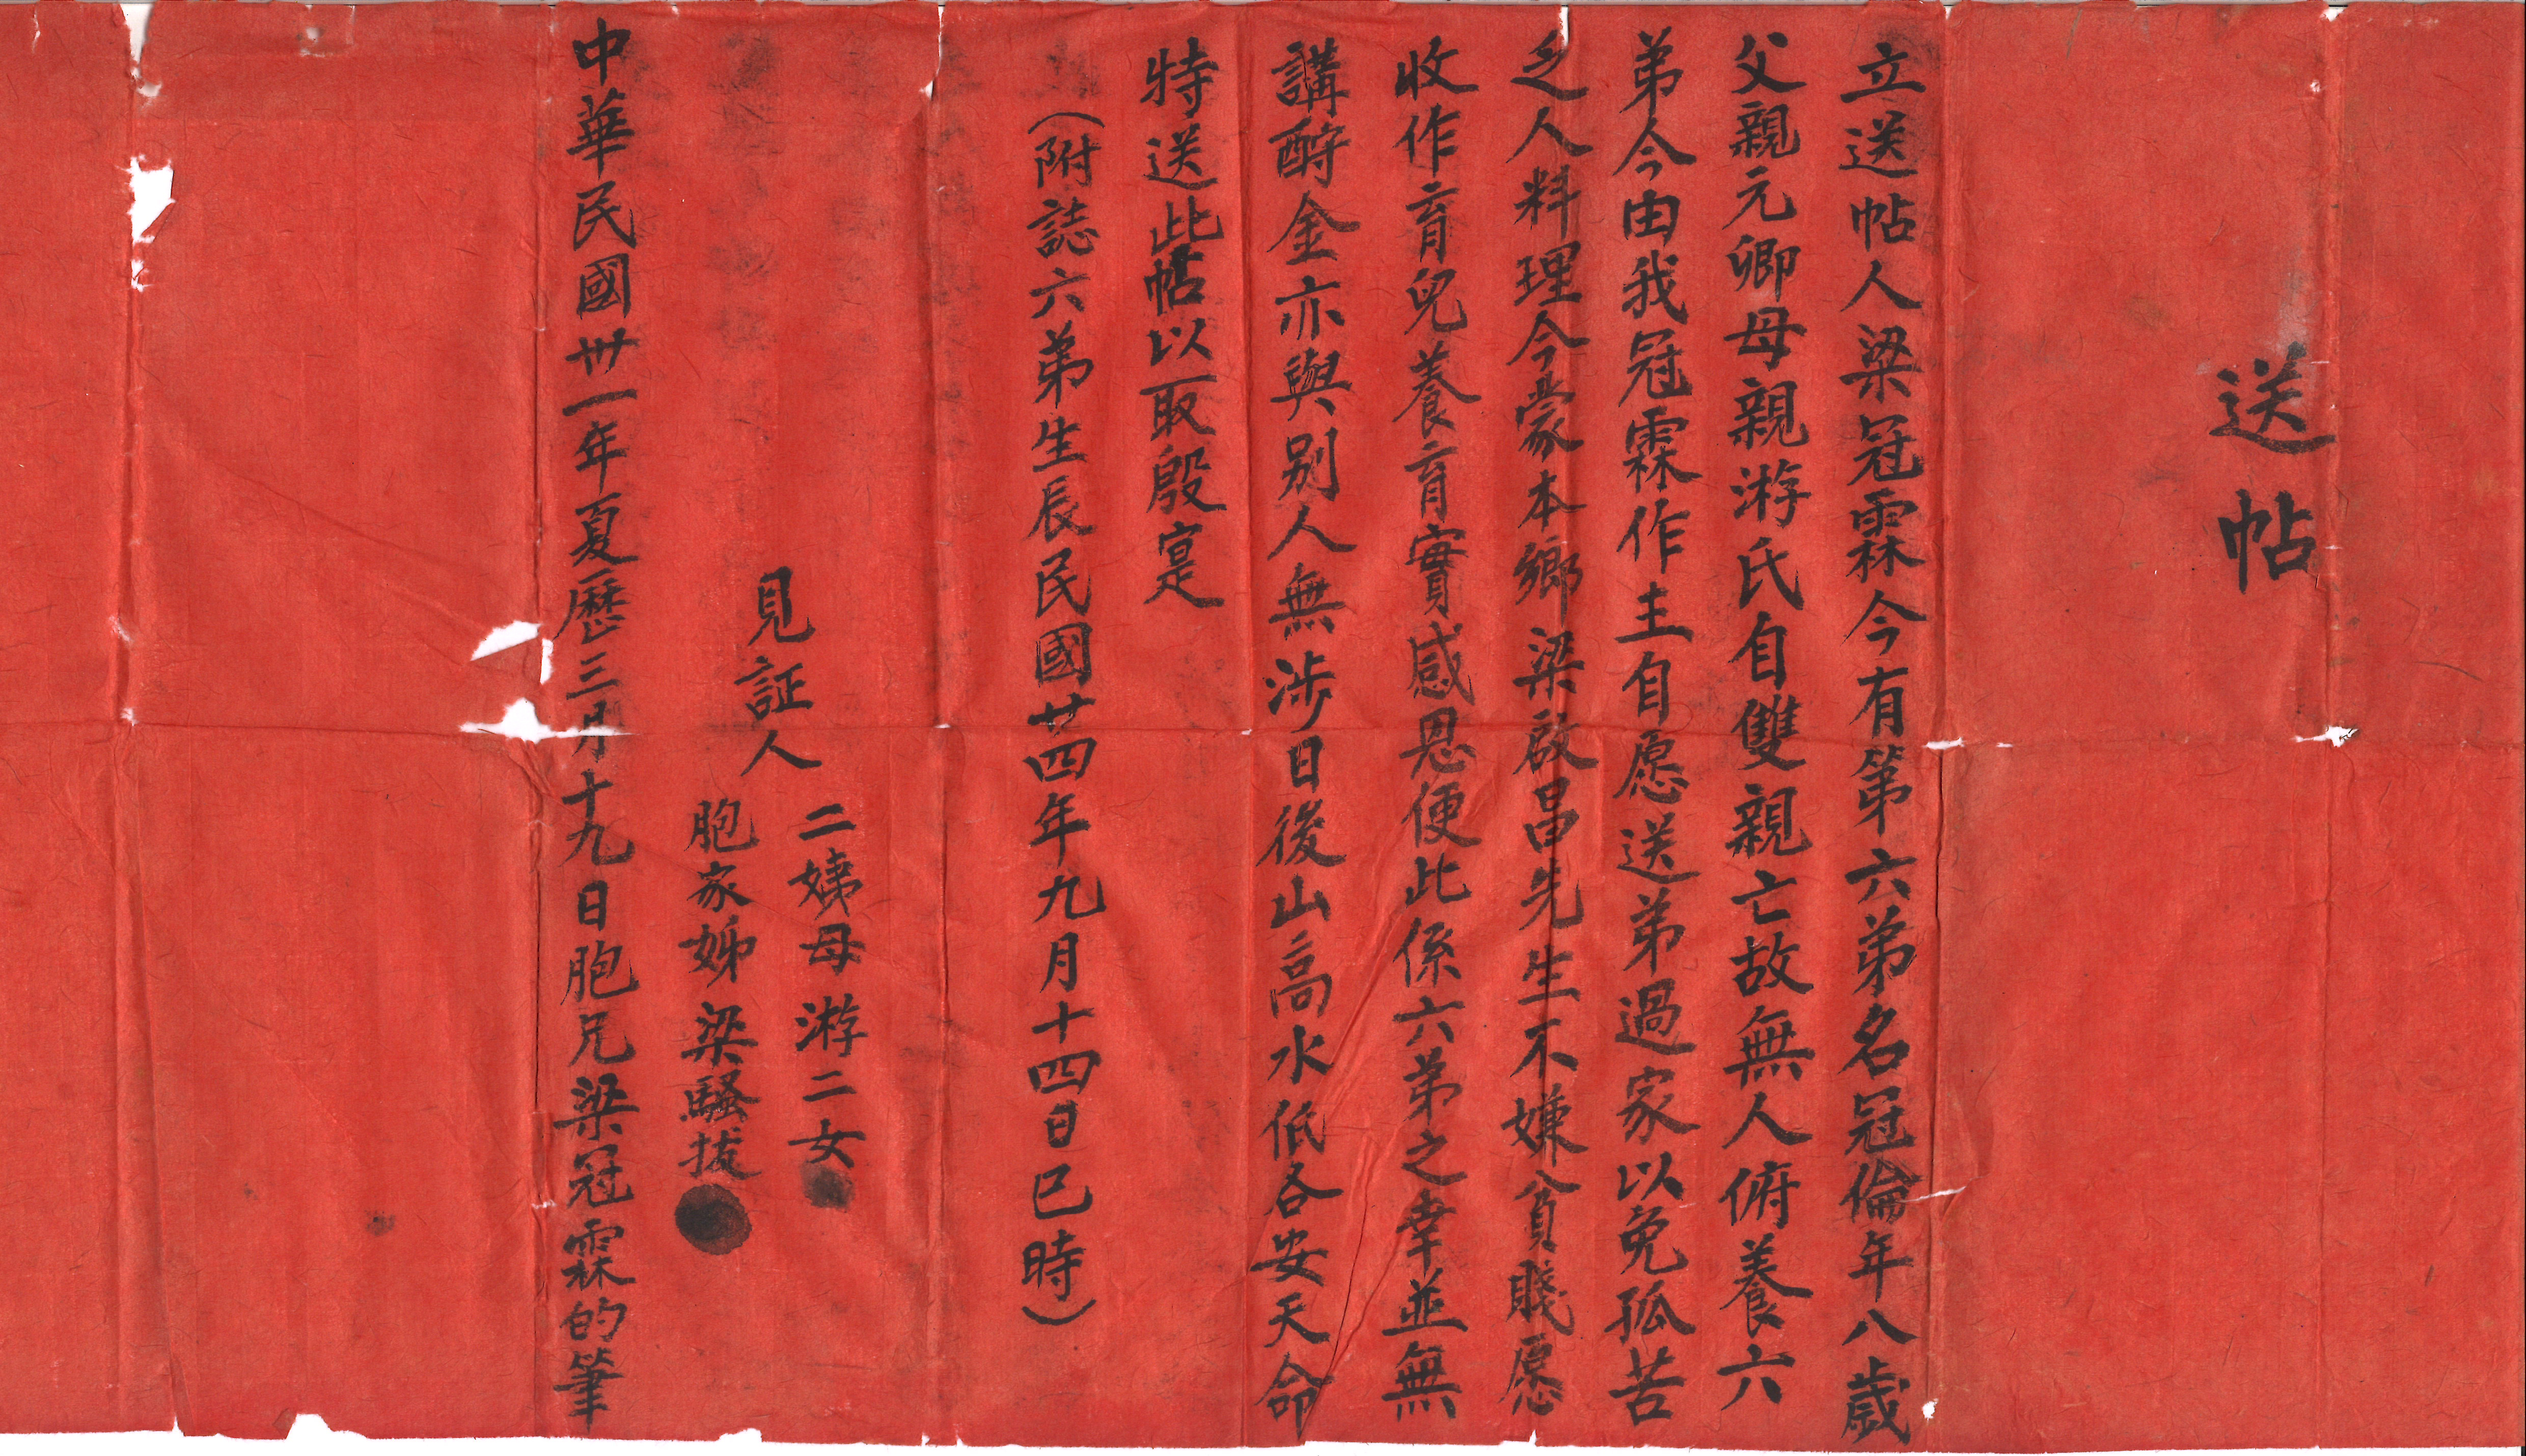 送帖
立送帖人梁冠霖今有第六弟名冠倫年八歲
父親元卿母親游氏自雙親亡故無人俯養六
弟今由我冠霖作主自愿送弟過家以免孤苦
乏人料理今蒙本鄉梁啟昌先生不嫌貧賤愿
收作育兒養育實感恩便此係六弟之幸並無
講酧金亦與別人無涉日後山高水低各安天命
特送此帖以取殷寔
(附誌六弟生辰民國廿四年九月十四日巳時)
見証人
二娣母游二女
胞家姊梁騷拔
中華民國卅一年夏曆三月十九日胞兄梁冠霖的筆